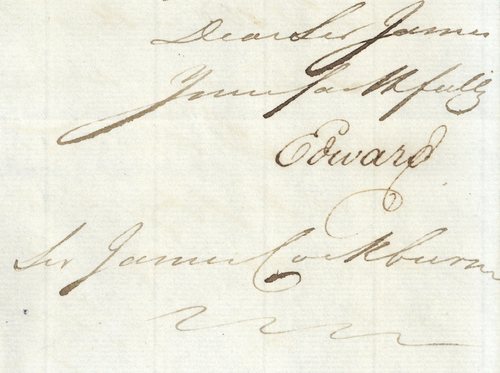 Dear Sir James
Yours faithfully
Edward
Sir James Cockburn